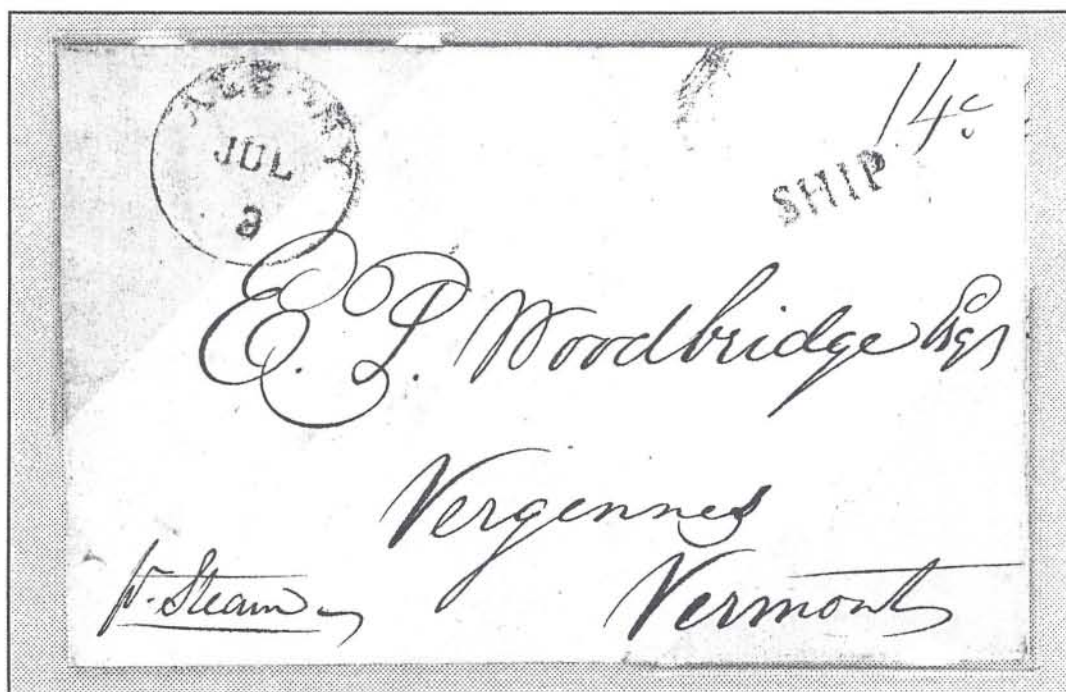 ALBANY
JUL
9
14c
SHIP
E. P. Woodbridge Esqr
Vergennes
Vermont
pr. Steam